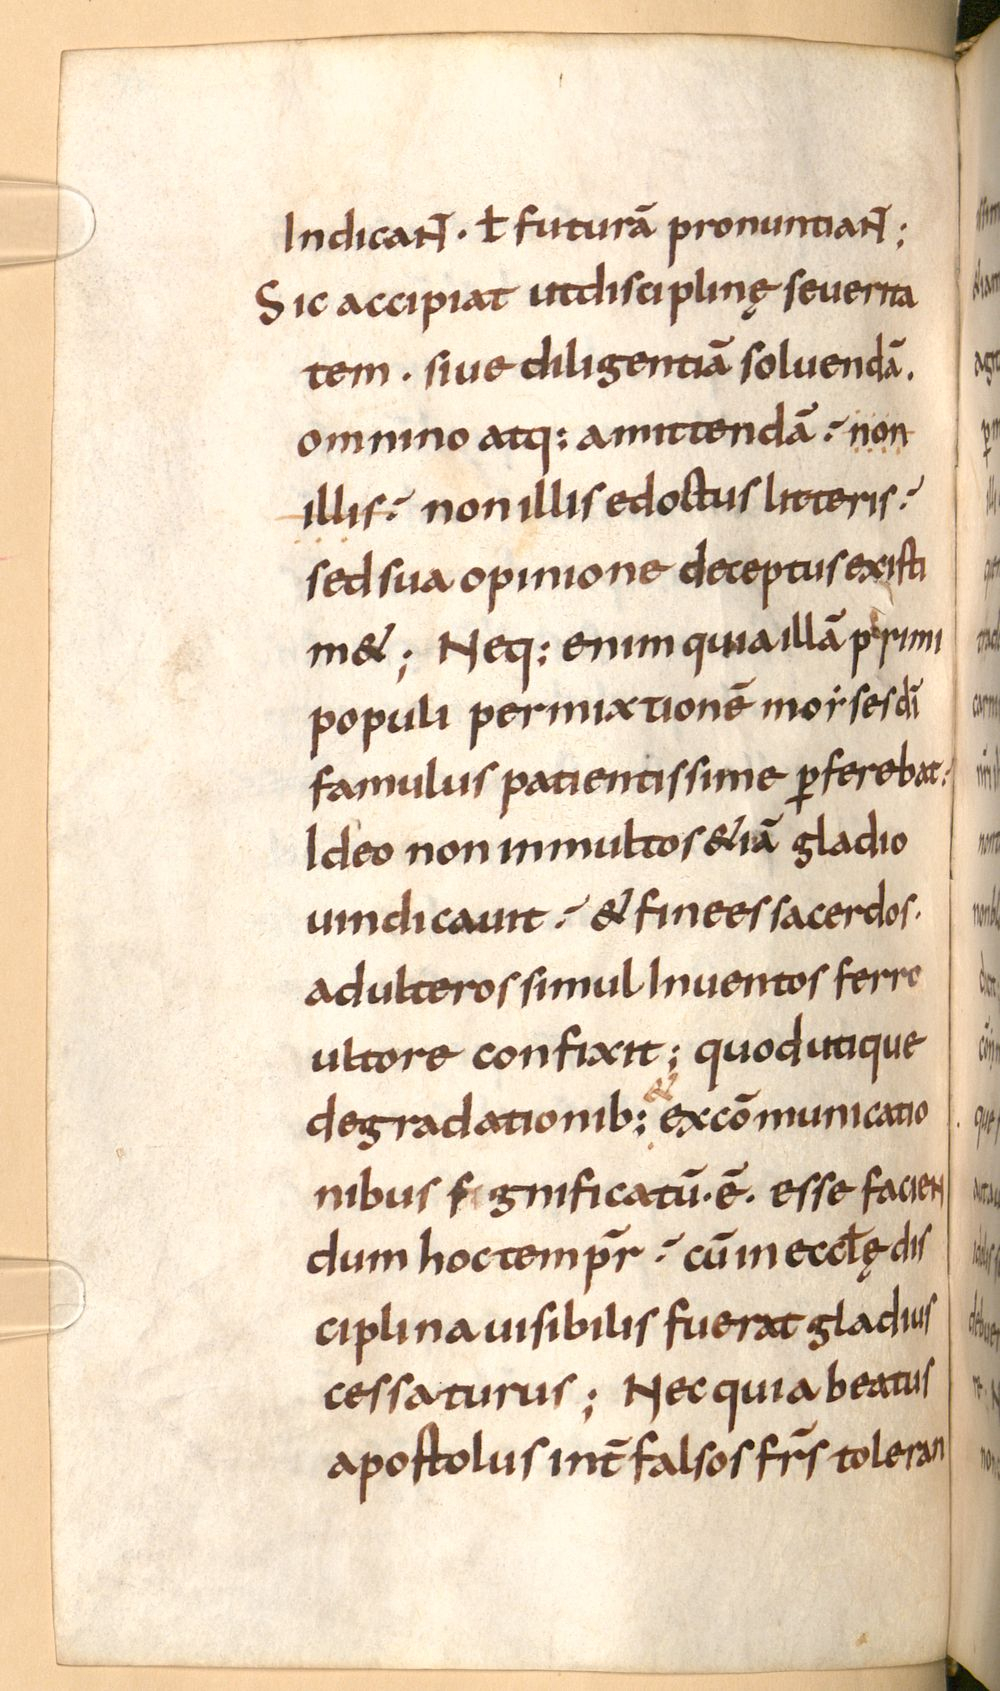 IndicaN̄ · ł futurā pronuntiaN̄ ;
Sic accipiat ut disciplinę seuerita
tem · siue diligentiā soluendā ·
omnino atq: amittendā :- non
illis :- non illis edoctus litteris :-
sed sua opinione deceptus existi
m& ; Neq: enim quia illā primi
populi permixtionē moẏses dī
famulus patientissime ꝑferebat :-
Ideo non in multos &iā gladio
uindicauit :- & finees sacerdos ·
adulteros simul Inuentos ferro
ultore confixit ; quod utique
degradationib: & excōmunicatio
nibus significatū · ē · esse facieN
dum hoc temp̄r :- cū in eccłę dis
ciplina uisibilis fuerat gladius
cessaturus ; Nec quia beatus
apostolus int̄ falsos fr̄s toleran